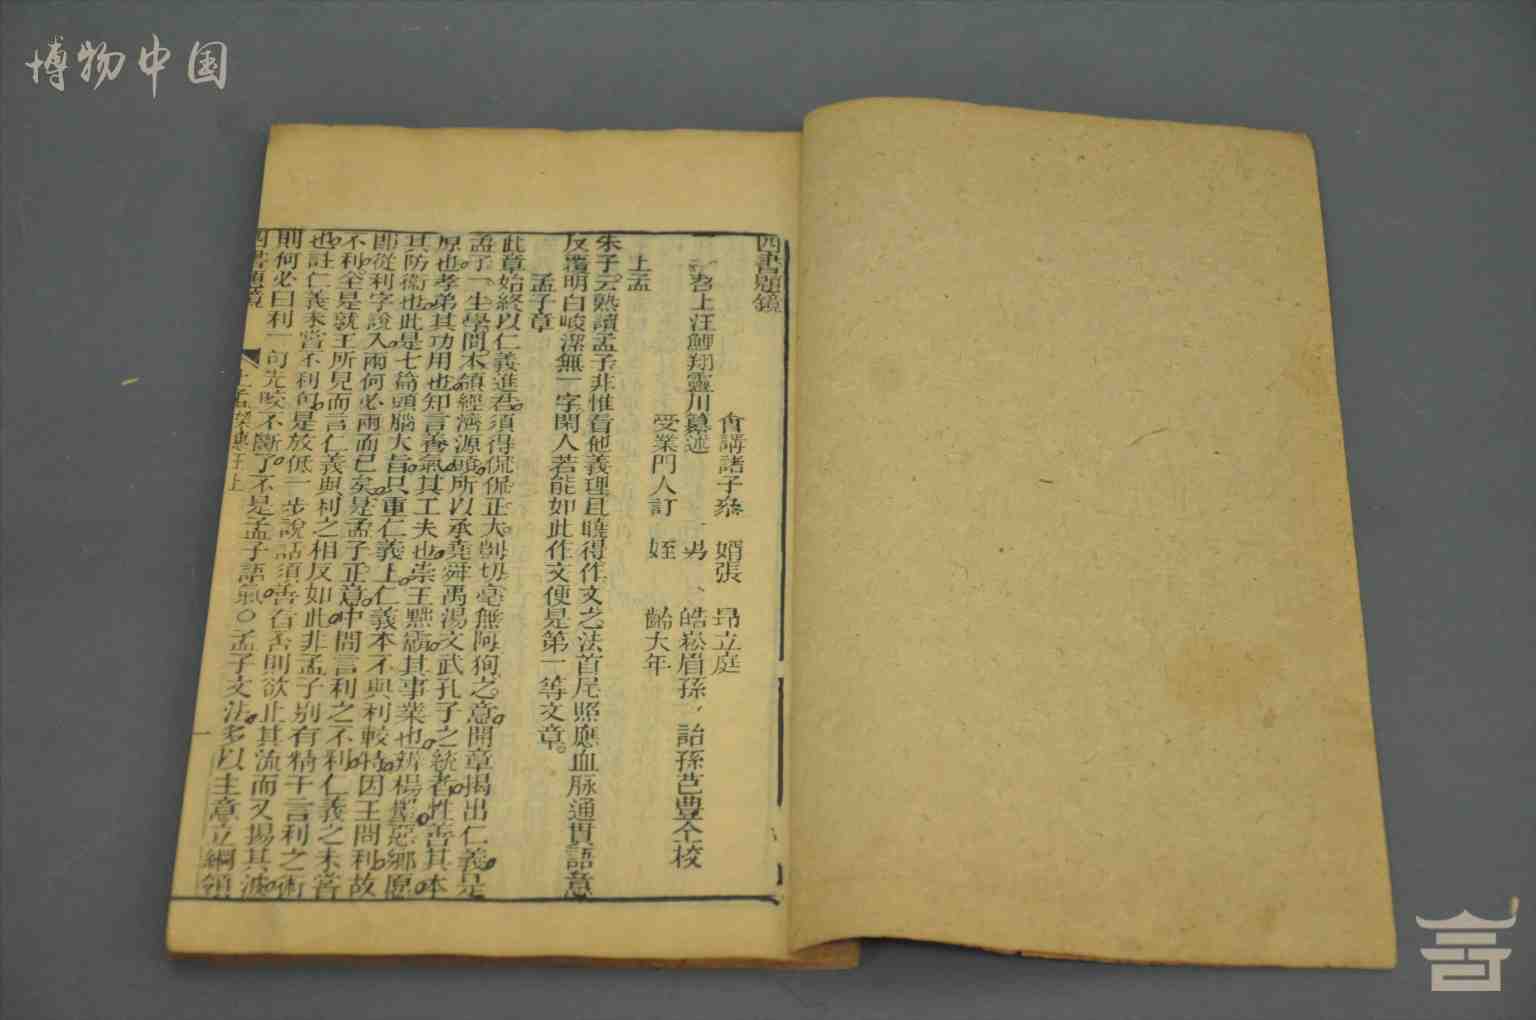 博物中国
四書題鏡
會講諸子叅 婿張 昻立庭
苕上汪鯉翔靈川纂述 男 皓崧眉孫 詒孫芑豊仝校
受業門人訂 姪 齡大年
上孟
朱子云熟讀孟子非惟看他義理且曉得作文之法首尾照應血脉通貫語意
反覆明白峻潔無一字閑人若能如此作文便是第一等文章
孟子章
此章始終以仁義進君須得侃侃正大剴切毫無阿狥之意開章揭出仁義是
孟子一生學問本領經濟源頭所以承堯舜禹湯文武孔子之統者性善其本
原也孝弟其功用也知言養氣其工夫也崇王黜霸其事業也辨楊墨惡鄉愿
其防衞也此是七篇頭腦大旨只重仁義上仁義本不與利較特因王問利故
即從利字說入兩何必兩而已矣是孟子正意中間言利之不利仁義之未嘗
不利全是就王所見而言仁義與利之相反如此非孟子别有精于言利之術
也註仁義未嘗不利句是放低一步說話須善看否則欲止其流而又揚其波
則何必曰利一句先咬不斷了不是孟子語氣〇孟子文法多以主意立綱領
四書題鏡 上孟